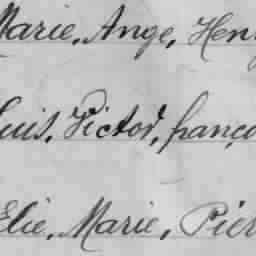 Marie, Ange, Hen
uis, Victor, franço
Elie, Marie, Pier